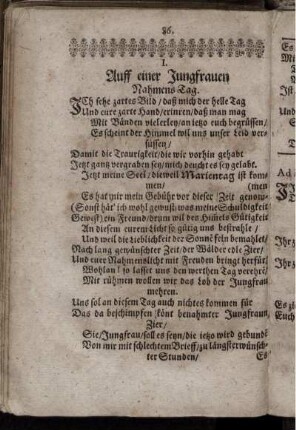 86.
I.
Auff einer Jungfrauen
Nahmens Tag.
ICh sehe zartes Bild / daß mich der helle Tag
Und eure zarte Hand / erinren / daß man mag
Mit Bänden vielerley / an ietzo euch begrüssen /
Es scheint der Himmel wil uns unser Leid ver-
süssen /
Damit die Traurigkeit / die wir vorhin gehabt
Jetzt gantz vergraben sey / mich deucht es sey gelabt.
Jetzt meine Seel / dieweil Marientag ist kom-
men / (men
Es hat mir mein Gebühr vor dieser Zeit genom-
(Sonst hät' ich wohl gewust was meine Schuldigkeit
Gewest) ein Freund / drum wil des Himels Gütigkeit
An diesem eurem Licht so gütig uns bestrahle /
Und weil die Liebligkeit der Sonne sein bemahlet /
Nach lang gewünschter Zeit / der Wälder edle Zier /
Und eure Nahmenslicht mit Freuden bringt herfür /
Wohlan! so lasset uns den werthen Tag verehre /
Mit rühmen wollen wir das Lob der Jungfrau
mehren.
Und sol an diesem Tag auch nichtes kommen für
Das da beschimpfen könt benahmter Jungfrauen
Zier /
Sie / Jungfrau / soll es seyn / die ietzo wird gebunde
Von mir mit schlechtem Brieff / zu längst erwünsch-
ter Stunden /
Es